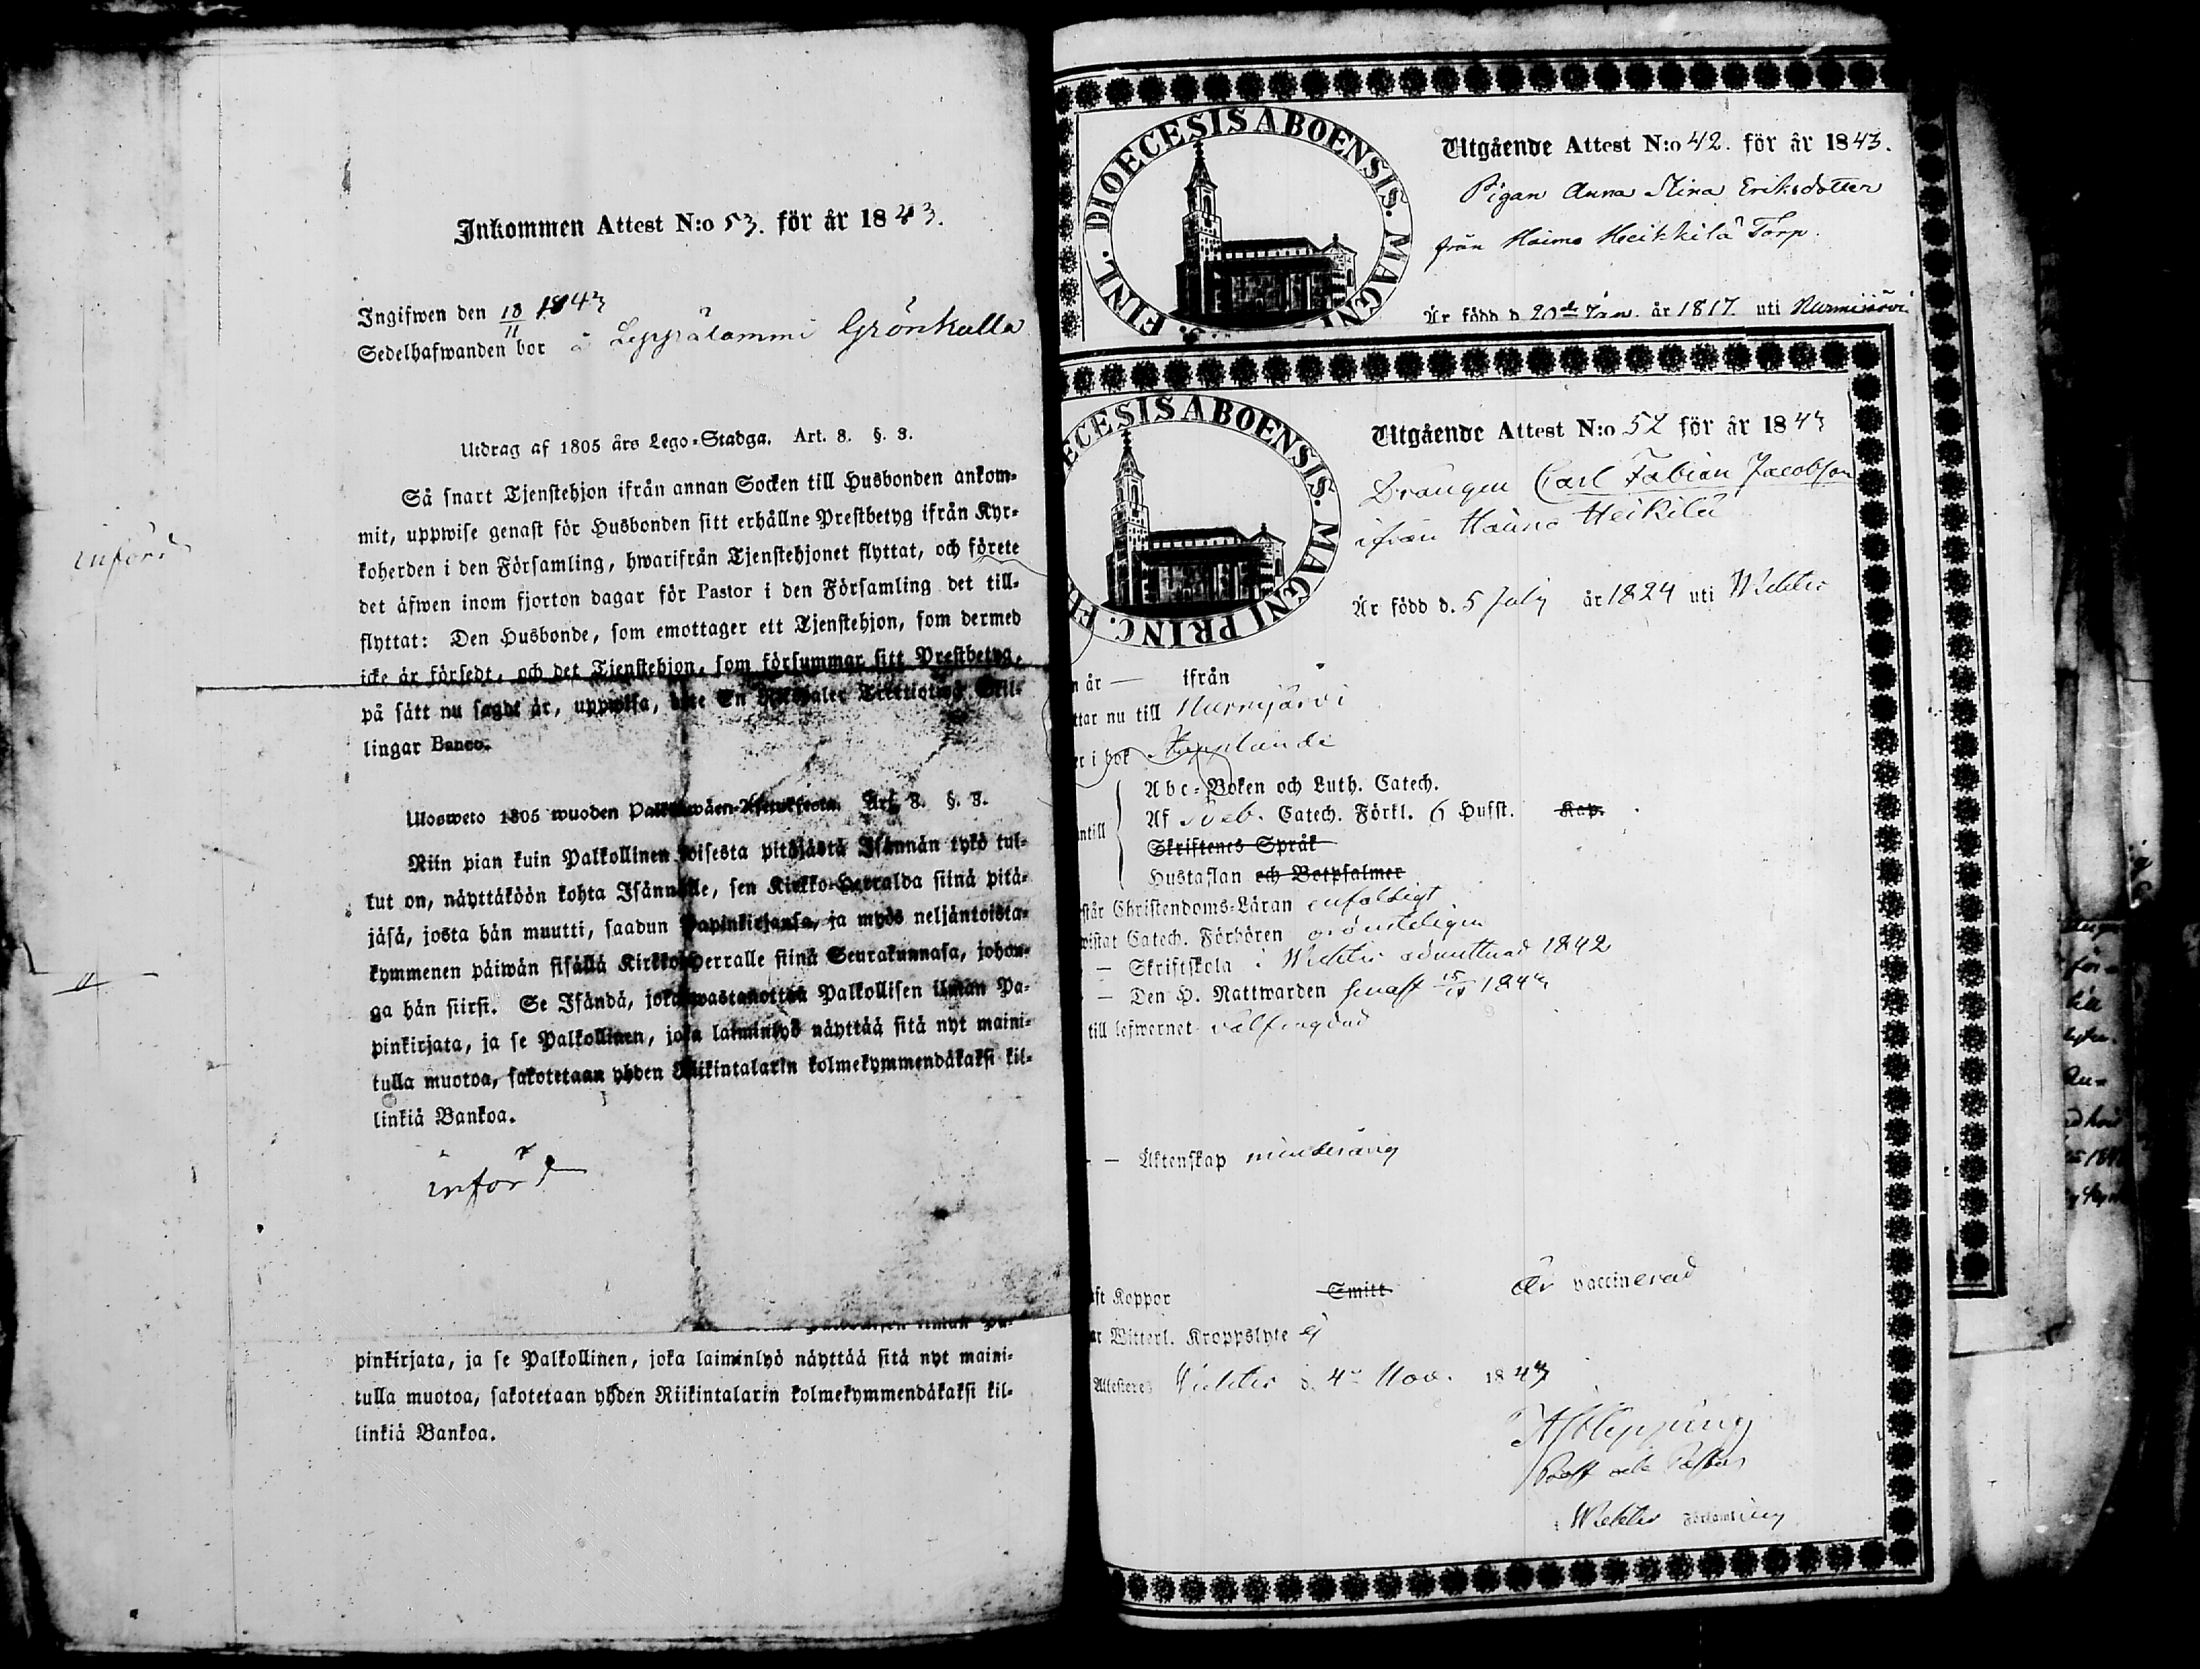 Inkommen Attest N:o 53. för år 1843.
Ingifwen den 18/11 1843
Sedelhafwanden bor å Leppälammi Grönkulla
Utdrag af 1805 års Lego-Stadga. Art. 8. §. 3.
Så snart Tjenstehjon ifrån annan Socken till Husbonden ankom-
mit, uppwise genast för Husbonden sitt erhållne Prestbetyg ifrån Kyr-
koherden i den Församling, hwarifrån Tjenstehjonet flyttat, och förete
det äfwen inom fjorton dagar för Pastor i den Församling det till-
flyttat: Den Husbonde, som emottager ett Tjenstehjon, som dermed
icke är försedt, och det Tjenstehjon, som försummar sitt Prestbetyg,
på sätt nu sagdt är, uppwisa, böte En Riksdaler Trettiotwå Skil-
lingar Banco.
införd
Ulosweto 1805 wuoden Palkkawäen-Asetuksesta. Art. 8. §. 3.
Niin pian kuin Palkollinen toisesta pitäjästä Isännän tykö tul-
lut on, näyttäköön kohta Isännälle, sen Kirkko-Herralda siinä pitä-
jäsä, josta hän muutti, saadun Papinkirjansa, ja myös neljäntoista-
kymmenen päiwän sisällä Kirkko-Herralle siinä Seurakunnasa, johon-
ga hän siirsi. Se Isändä, joka wastanottaa Palkollisen ilman Pa-
pinkirjata, ja se Palkollinen, joka laiminlyö näyttää sitä nyt maini-
tulla muotoa, sakotetaan yhden Riikintalarin kolmekymmendäkaksi kil-
linkiä Bankoa.
införd
pinkirjata, ja se Palkollinen, joka laiminlyö näyttää sitä nyt maini-
tulla muotoa, sakotetaan yhden Riikintalarin kolmekymmendäkaksi kil-
linkiä Bankoa.
FINL. DIOECESIS ABOENSIS. MAGNI
Utgående Attest N:o 42. för år 1843.
Pigan Anna Stina Eriksdotter
från Haimo Heikkilä Torp.
Är född d. 20de Jan. år 1817 uti Nurmijärvi
ECESIS ABOENSIS. MAGNI PRINC. FI
Utgående Attest N:o 52 för år 1843
Drängen Carl Fabian Jacobsson
ifrån Haimo Heikilä
Är född d. 5 July år 1824 uti Wichtis
n år — ifrån
ttar nu till Nurmijärvi
er i bok
Abc-Boken och Luth. Catech.
ntill Af Sveb. Catech. Förkl. 6 Hufst. Kap.
Skriftenes Språk
Hustaflan och Botpsalmer
står Christendoms-Läran enfaldigt
wistat Catech. Förhören ordenteligen
— Skriftskola i Wichtis admitterad 1842
— Den H. Nattwarden senast 1843
till lefwernet välfrägdad
— Äktenskap minderårig
aft Koppor Smitt Är vaccinerad
ar Witterl. Kroppslyte ej
Attesteres Wichtis d. 4de Nov. 1843
Prost och Pastor
i Wichtis Församling